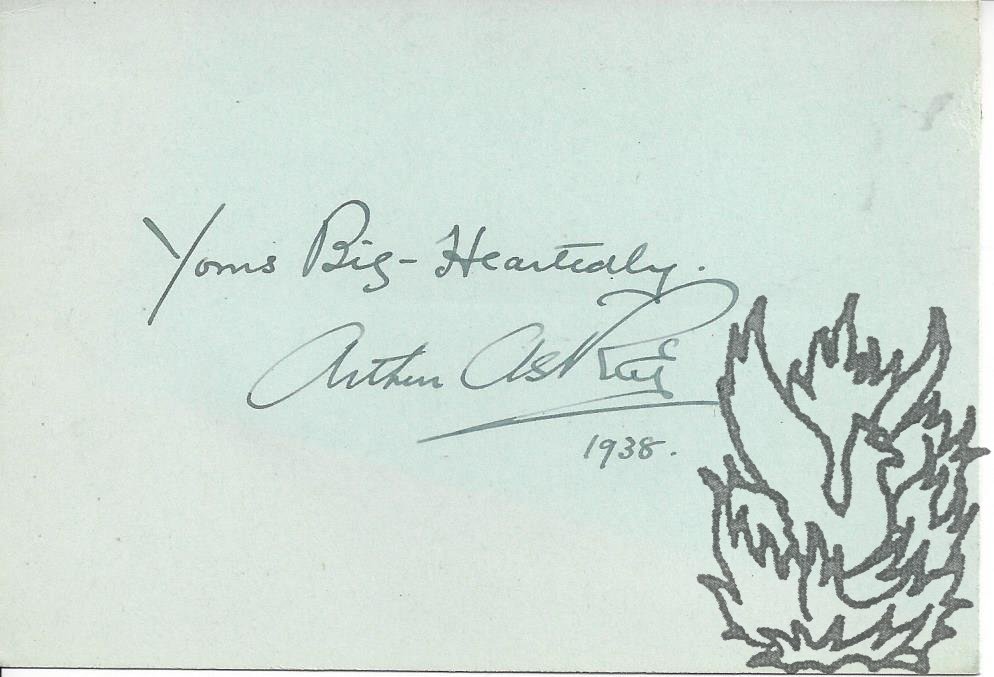 Yours Big-Heartedly.
Arthur Askey
1938.